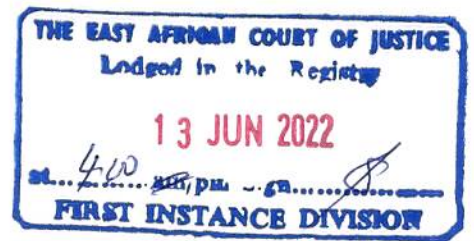 THE EAST AFRICAN COURT OF JUSTICE
Lodged in the Registry
13 JUN 2022
at... 4.00 am, pm
FIRST INSTANCE DIVISION